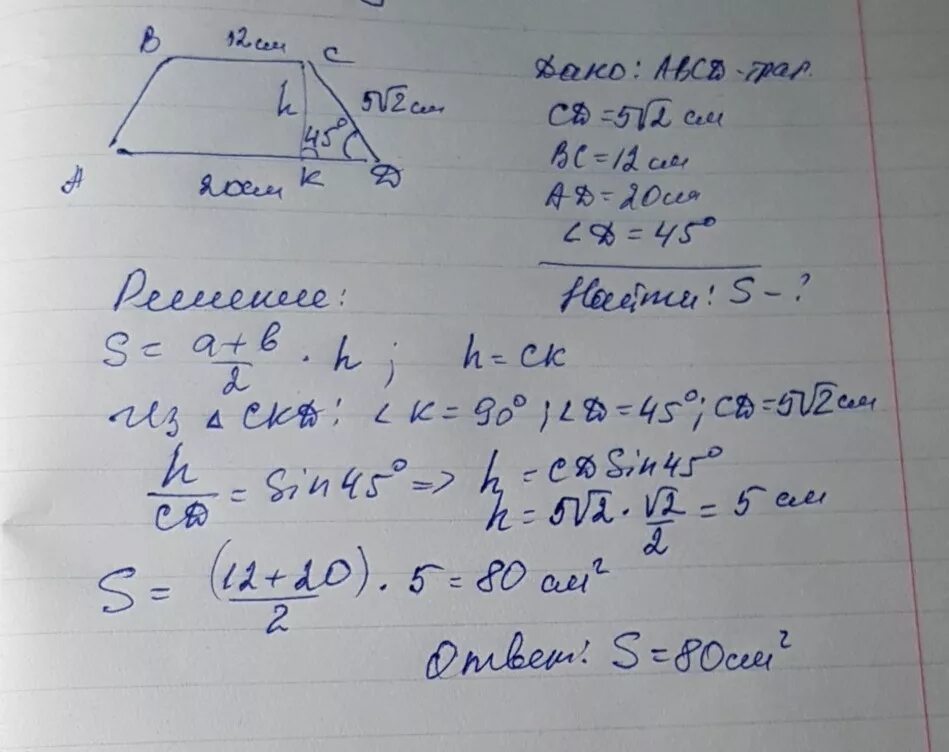 B 12 см C
h 5√2 см
45°
A 20 см K D
Дано: ABCD - трап.
CD = 5√2 см
BC = 12 см
AD = 20 см
∠D = 45°
Найти: S - ?
Решение:
S = (a + b)/2 · h ; h = CK
Из △ CKD: ∠K = 90°; ∠D = 45°; CD = 5√2 см
h/CD = Sin 45° => h = CD Sin 45°
h = 5√2 · √2/2 = 5 см
S = (12 + 20)/2 · 5 = 80 см²
Ответ: S = 80 см²